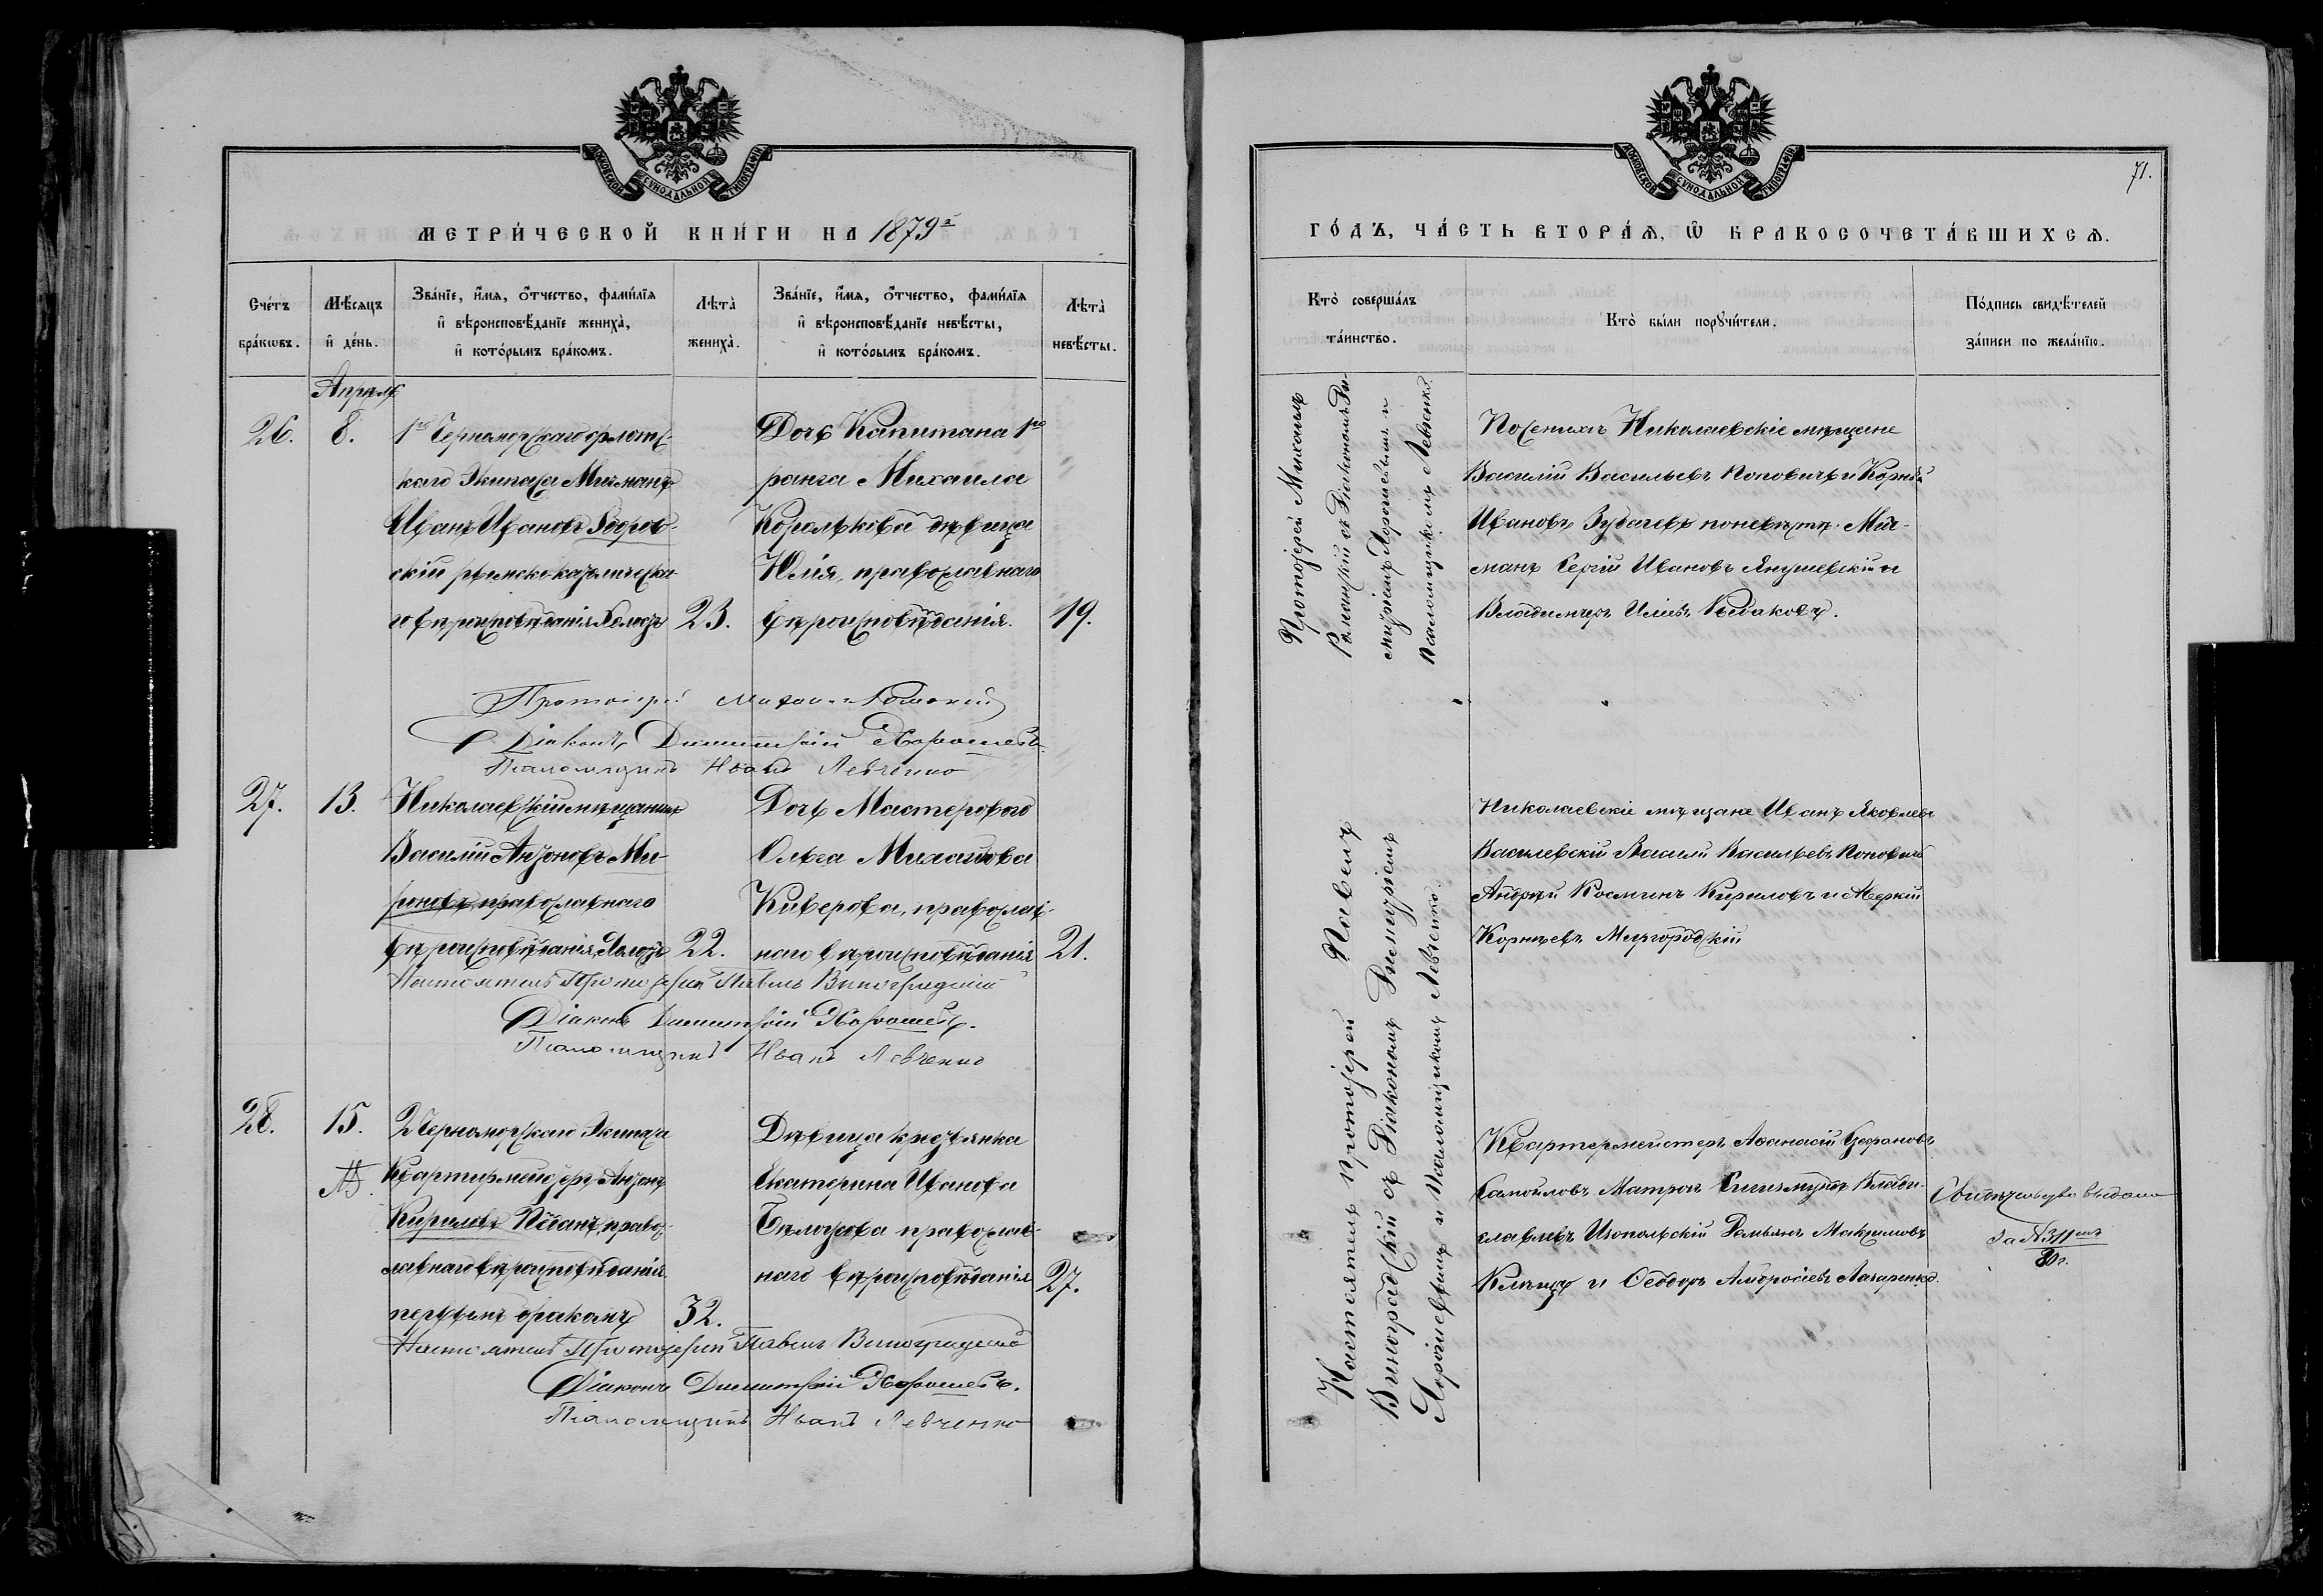 МОСКОВСКОЙ СѴНОДАЛЬНОЙ ТИПОГРАФІИ
МЕТРИ́ЧЕСКОЙ КНИ́ГИ НА 1879й
Сче́тъ бра́кѡвъ.
Мѣ́сяцъ и҆ де́нь.
Зва́нїе, и҆́мя, ѻ҆́тчество, фамн́лїя
и҆ вѣроисповѣ́данїе жениха̀,
и҆ кото́рымъ бра́комъ.
Лѣта̀ жениха̀.
Зва́нїе, и҆́мя, ѻ҆́тчество, фами́лїя
и҆ вѣроисповѣ́данїе невѣ́сты,
и҆ кото́рымъ бра́комъ.
Лѣта̀ невѣ́сты.
Апрель
26.
8.
1го Черноморскаго флотс-
каго Экипажа Мичманъ
Иванъ Ивановъ
скій римско-католическа-
го вѣроисповѣданія Холостъ
23.
Дочь Капитана 1го
ранга Михаила
Королькова дѣвица
Юлія, православнаго
вѣроисповѣданія.
19.
Протоіерей Михаилъ Романскій
Діаконъ Димитрій Хорошевъ
Псаломщикъ Иванъ Левченко
27.
13.
Николаевскій мѣщанинъ
Василій Антоновъ Ми-
роновъ, православнаго
вѣроисповѣданія, Холостъ
22.
Дочь Мастероваго
Ольга Михайлова
Киверова, православ-
наго вѣроисповѣданія
21.
Настоятель Протоіерей Павелъ Виноградскій
Діаконъ Димитрій Хорошевъ.
Псаломщикъ Иванъ Левченко
28.
15.
2 Черноморскаго Экипажа
Квартирмейстеръ Антонъ
Кириловъ правос-
лавнаго вѣроисповѣданія
первымъ бракомъ
32.
Дѣвица крестьянка
Екатерина Иванова
Бѣлоусова православ-
наго вѣроисповѣданія
27.
Настоятель Протоіерей Павелъ Виноградскій
Діаконъ Димитрій Хорошевъ.
Псаломщикъ Иванъ Левченко
71.
МОСКОВСКОЙ СѴНОДАЛЬНОЙ ТИПОГРАФІИ
ГО́ДЪ, ЧА́СТЬ ВТОРА́Ѧ, Ѡ҆ БРАКОСОЧЕТА́ВШИХСѦ.
Кто̀ соверша́лъ
та́инство.
Кто̀ бы́ли порꙋчи́тели.
По́дпись свидѣ́телей
за́писи по жела́нїю.
Протоіерей Михаилъ
Романскій съ Діакономъ Ди-
митріемъ Хорошевымъ и
Псаломщикомъ Левченко.
По женихѣ Николаевскіе мѣщане
Василій Васильевъ Поповичъ и Корнѣй
Ивановъ Зубачевъ по невѣстѣ: Мич-
манъ Сергій Ивановъ Янушевскій и
Владимиръ Ильевъ
Настоятель Протоіерей Павелъ
Виноградскій съ Діакономъ Димитріемъ
Хорошевымъ и Псаломщикомъ Левченко.
Николаевскіе мѣщане Иванъ Яковлевъ
Василевскій Василій Васильевъ Поповичъ
Андрей Косминъ Кириловъ и Аверкій
Корнѣевъ Миргородскій
Квартермейстеръ Аѳанасій Стефановъ
Самойловъ Матросъ Сигизмундъ Влади-
славлевъ Демьянъ Максимовъ
и Ѳеодоръ Амвросіевъ Лазаренко.
Свидѣтельство выдано
за № 511
80 г.